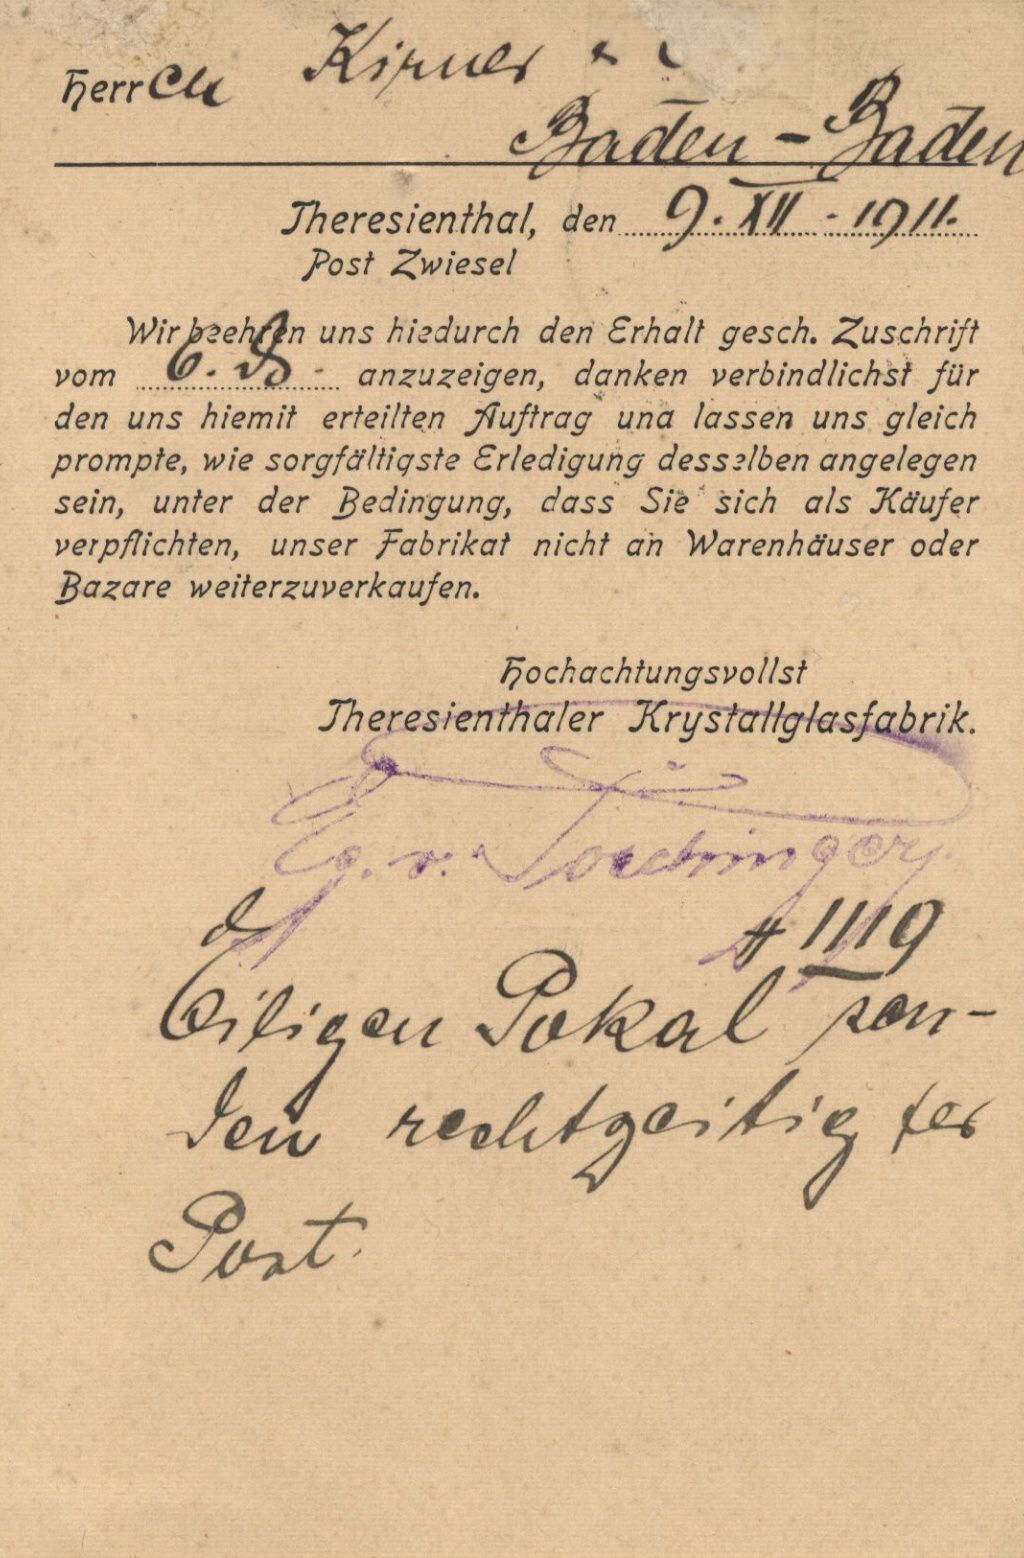 Herren Kirner
Baden-Baden
Theresienthal, den 9. XII. 1911.
Post Zwiesel
Wir beehren uns hiedurch den Erhalt gesch. Zuschrift
vom 6. ds. anzuzeigen, danken verbindlichst für
den uns hiemit erteilten Auftrag und lassen uns gleich
prompte, wie sorgfältigste Erledigung desselben angelegen
sein, unter der Bedingung, dass Sie sich als Käufer
verpflichten, unser Fabrikat nicht an Warenhäuser oder
Bazare weiterzuverkaufen.
Hochachtungsvollst
Theresienthaler Krystallglasfabrik.
Eg. v. Poschinger
1119
Eiligen Pokal sen-
den rechtzeitig per
Post.